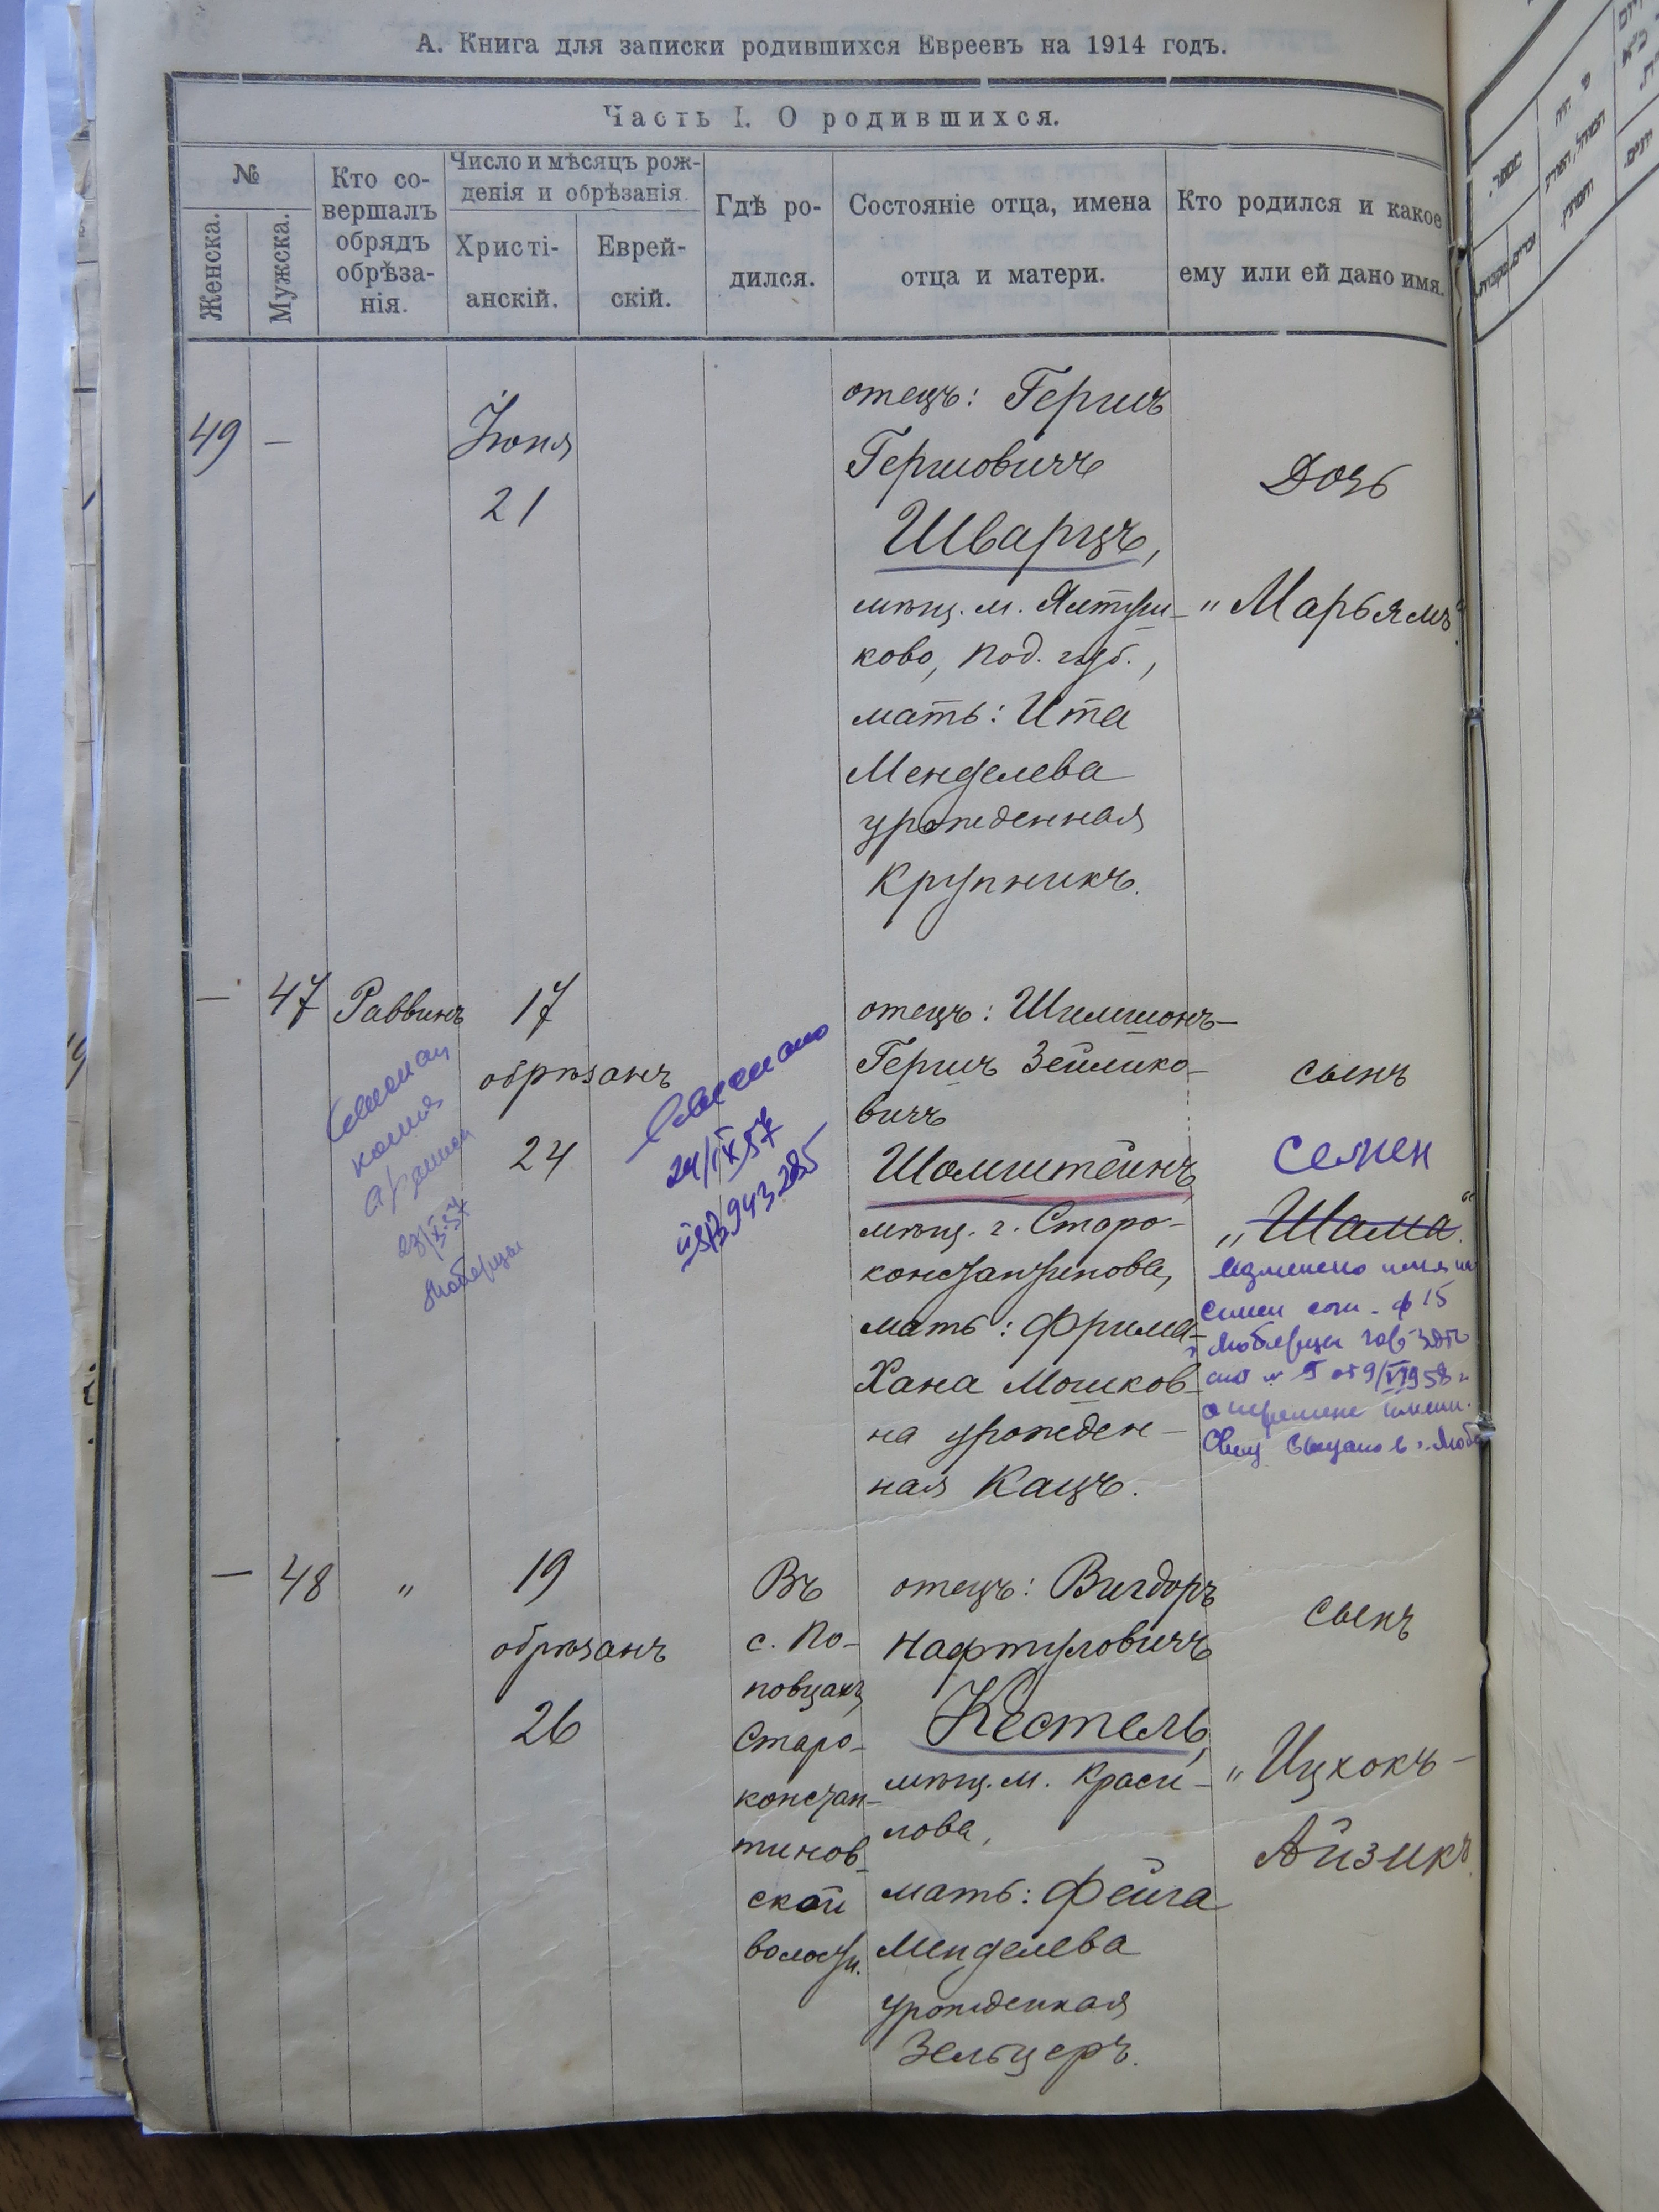 А. Книга для записки родившихся Евреевъ на 1914 годъ.
Часть I. О родившихся.
№
Женска.
Мужска.
Кто со-
вершалъ
обрядъ
обрѣза-
нія.
Число и мѣсяцъ рож-
денія и обрѣзанія.
Христі-
анскій.
Еврей-
скій.
Гдѣ ро-
дился.
Состояніе отца, имена
отца и матери.
Кто родился и какое
ему или ей дано имя.
49
—
Іюня
21
отецъ: Гершъ
Гершовичъ
Шварцъ,
мѣщ. м. Ялтуш-
ково, Под. губ.,
мать: Ита
Менделева
урожденная
Крупникъ.
Дочь
"Марьямъ"
—
47
Раввинъ
17
обрѣзанъ
24
копия
24/IX57
отецъ: Шимшонъ-
Гершъ Зейлико-
вичъ
Шомштейнъ,
мѣщ. г. Старо-
константинова,
мать: Фрима-
Хана Мошков-
на урожден-
ная Кацъ.
сынъ
Семен
„Шама"
Изменено имя на
Семен
Люберцы
от 9/VI 1958 г
о перемене имени.
—
48
"
19
обрѣзанъ
26
Въ
с. По-
повцахъ
Старо-
констан-
тинов-
ской
волости.
отецъ: Вигдоръ
Нафтуловичъ
Кестель,
мѣщ. м. Краси-
лова,
мать: Фейга
Менделева
урожденная
Зельцеръ.
сынъ
"Ицхокъ-
Айзикъ